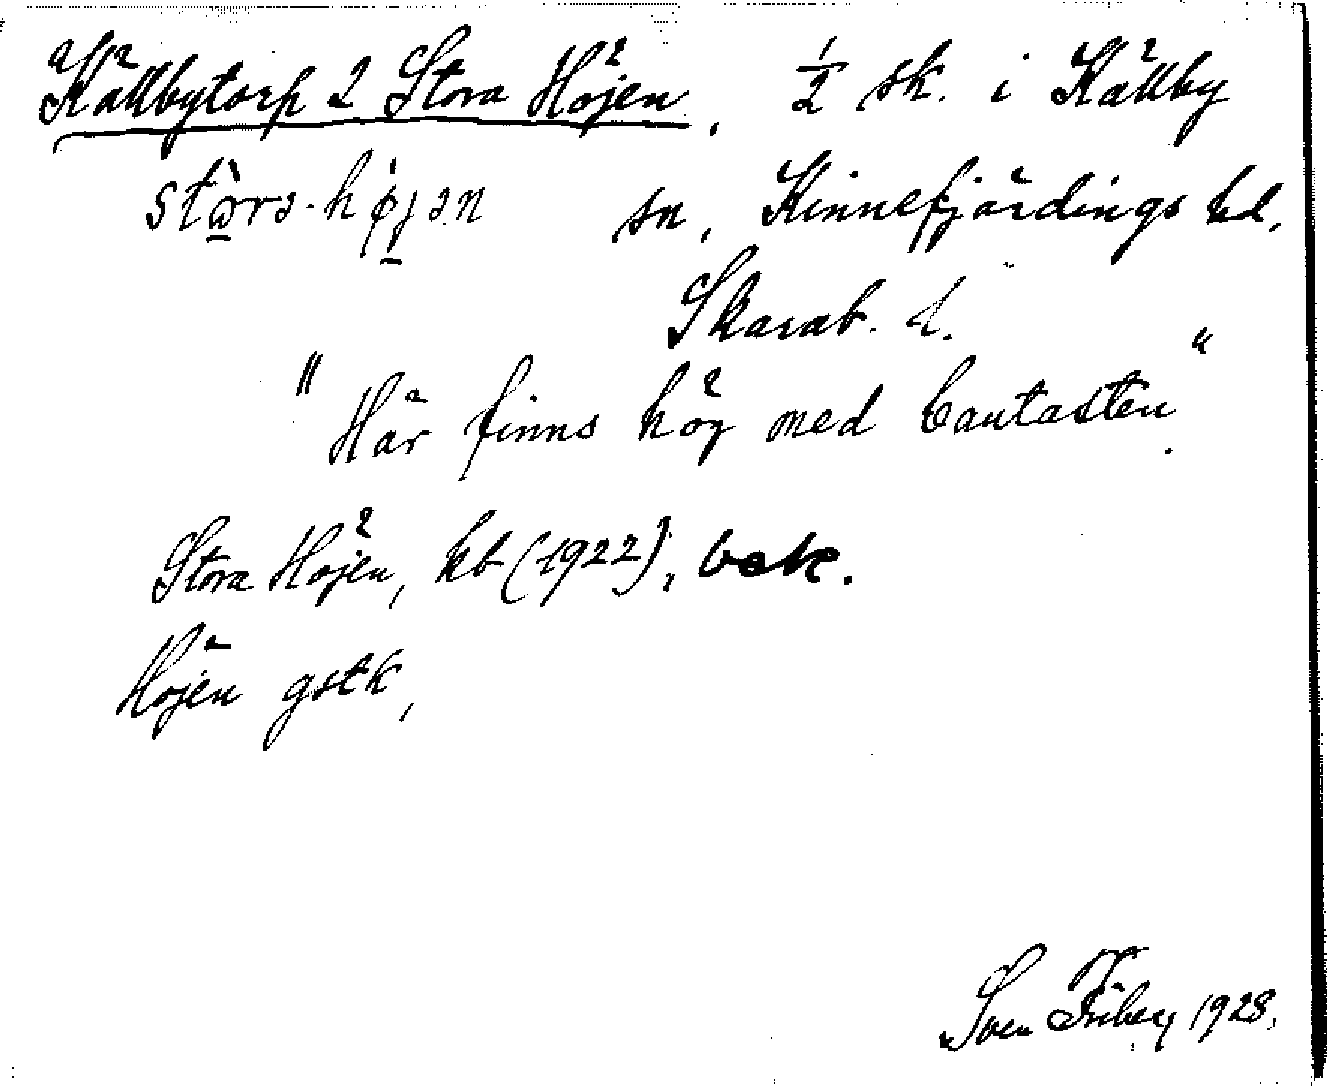 Källbytorp 2 Stora Höjen, 1/2 sk. i Källby
störə-höjən sn, Kinnefjärdings hd,
Skarab. l.
"Här finns hög med bautasten."
Stora Höjen, hb (1922), bek.
Höjen gstk,
Sven Friberg 1928.